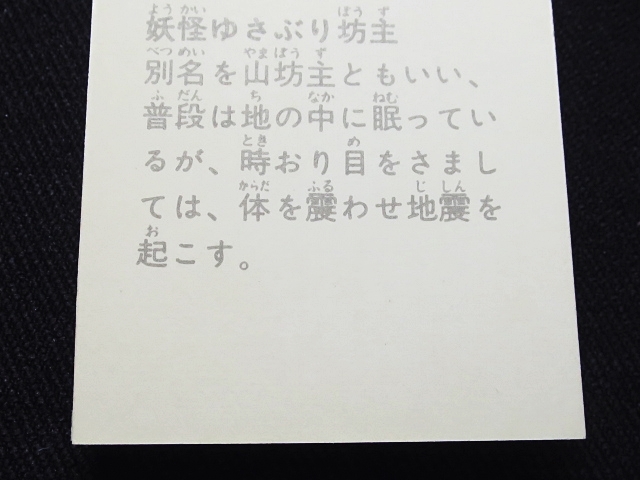 妖怪ゆさぶり坊主
別名を山坊主ともいい、
普段は地の中に眠ってい
るが、時おり目をさまし
ては、体を震わせ地震を
起こす。